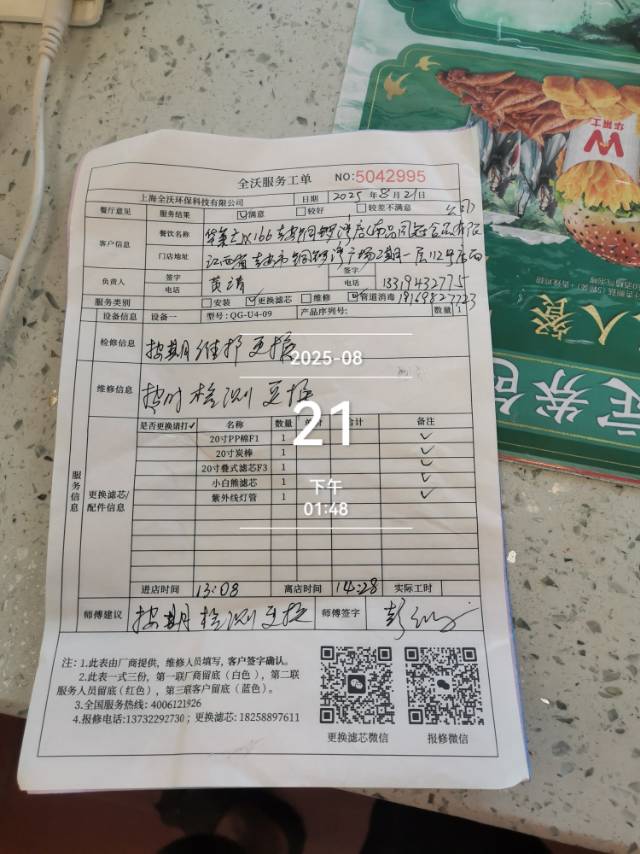 全沃服务工单 NO:5042995
上海全沃环保科技有限公司 日期 2025 年 8 月 21 日
餐厅意见 服务结果 ☑满意 □较好 □较差不满意
客户信息 餐饮名称
门店地址 江西省吉安市铜锣湾广场2期一层112
负责人 签字 黄靖 签字
电话 电话 13319432775
服务类别 □安装 ☑更换滤芯 □维修 ☑管道消毒 19169827723
设备信息 设备一 型号:QG-U4-09 产品序列号: 数量 1
检修信息 按期维护更换
维修信息 按时检测更换
服务信息 更换滤芯/配件信息
是否更换请打✓ 名称 数量 合计 备注
20寸PP棉F1 1 ✓
20寸炭棒 1 ✓
20寸叠式滤芯F3 1 ✓
小白熊滤芯 1 ✓
紫外线灯管 1 ✓
进店时间 13:08 离店时间 14:28 实际工时
师傅建议 按期检测更换 师傅签字
注:1.此表由厂商提供,维修人员填写,客户签字确认。
2.此表一式三份,第一联厂商留底(白色),第二联
服务人员留底(红色),第三联客户留底(蓝色)。
3.全国服务热线:4006121926
4.报修电话:13732292730;更换滤芯:18258897611
更换滤芯微信 报修微信
2025-08
21
下午
01:48
W
华莱士
人餐